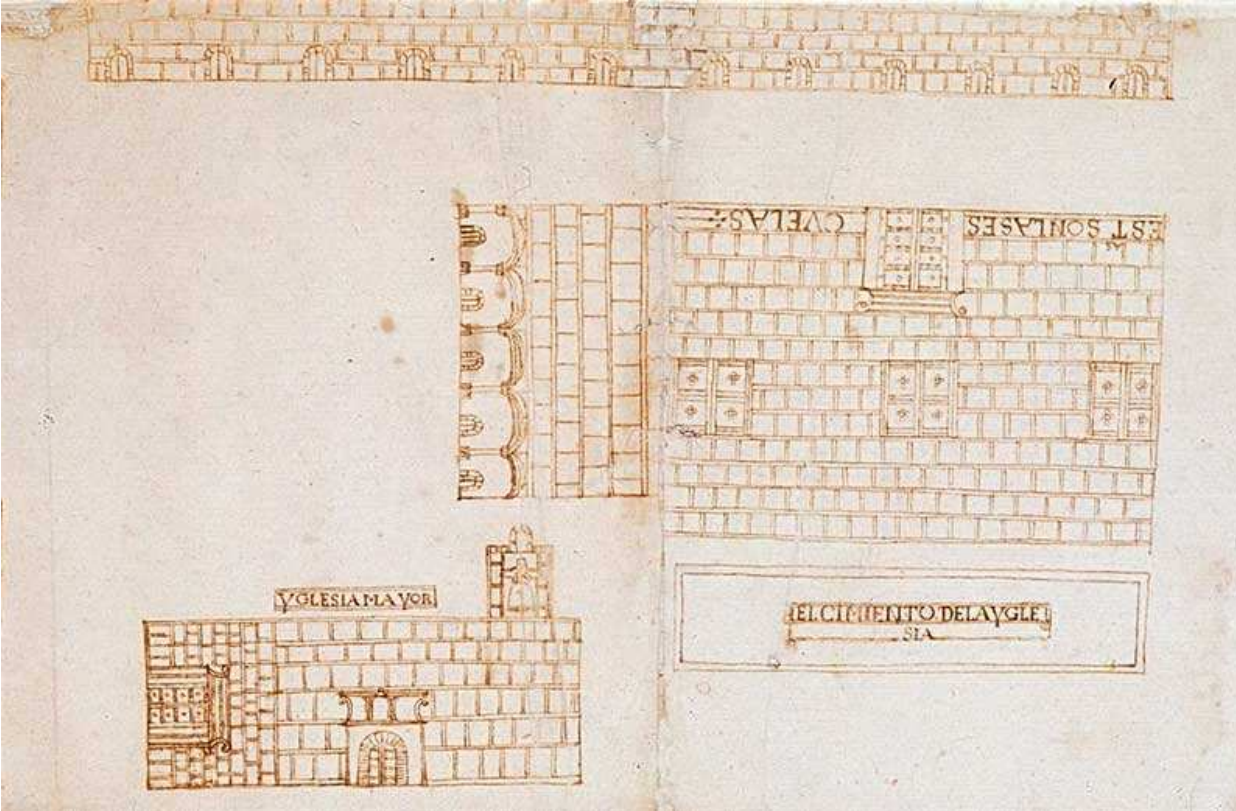 EST^AS SON LAS ES CVELAS
YGLESIA MAYOR
EL CIMIENTO DE LA YGLE
SIA